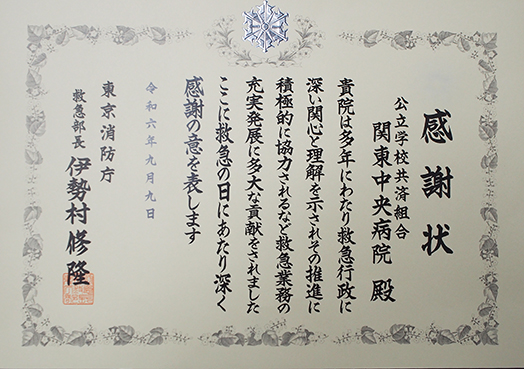 感謝状
公立学校共済組合
関東中央病院 殿
貴院は多年にわたり救急行政に
深い関心と理解を示されその推進に
積極的に協力されるなど救急業務の
充実発展に多大な貢献をされました
ここに救急の日にあたり深く
感謝の意を表します
令和六年九月九日
東京消防庁
救急部長 伊勢村修隆